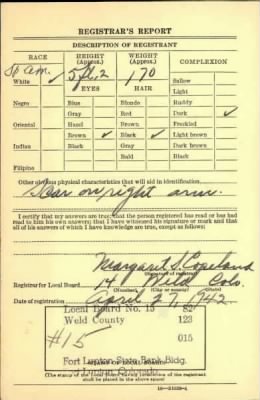 REGISTRAR'S REPORT
DESCRIPTION OF REGISTRANT
RACE HEIGHT (Approx.) WEIGHT (Approx.) COMPLEXION
Sp am. 5 ft. 2 170
White ✓ EYES HAIR Sallow
Light
Negro Blue Blonde Ruddy
Gray Red Dark ✓
Oriental Hazel Brown Freckled
Brown ✓ Black ✓ Light brown
Indian Black Gray Dark brown
Bald Black
Filipino
Other obvious physical characteristics that will aid in identification
Scar on right arm.
I certify that my answers are true; that the person registered has read or has had
read to him his own answers; that I have witnessed his signature or mark and that
all of his answers of which I have knowledge are true, except as follows:
Margaret S. Copeland
Registrar for Local Board 15 Weld Colo.
(Number) (City or county) (State)
Date of registration April 27, 1942
Local Board No. 15 82
Weld County 123
#15 015
Fort Lupton State Bank Bldg.
Fort Lupton, Colorado
(STAMP OF LOCAL BOARD)
(The stamp of the Local Board having jurisdiction of the registrant
shall be placed in the above space)